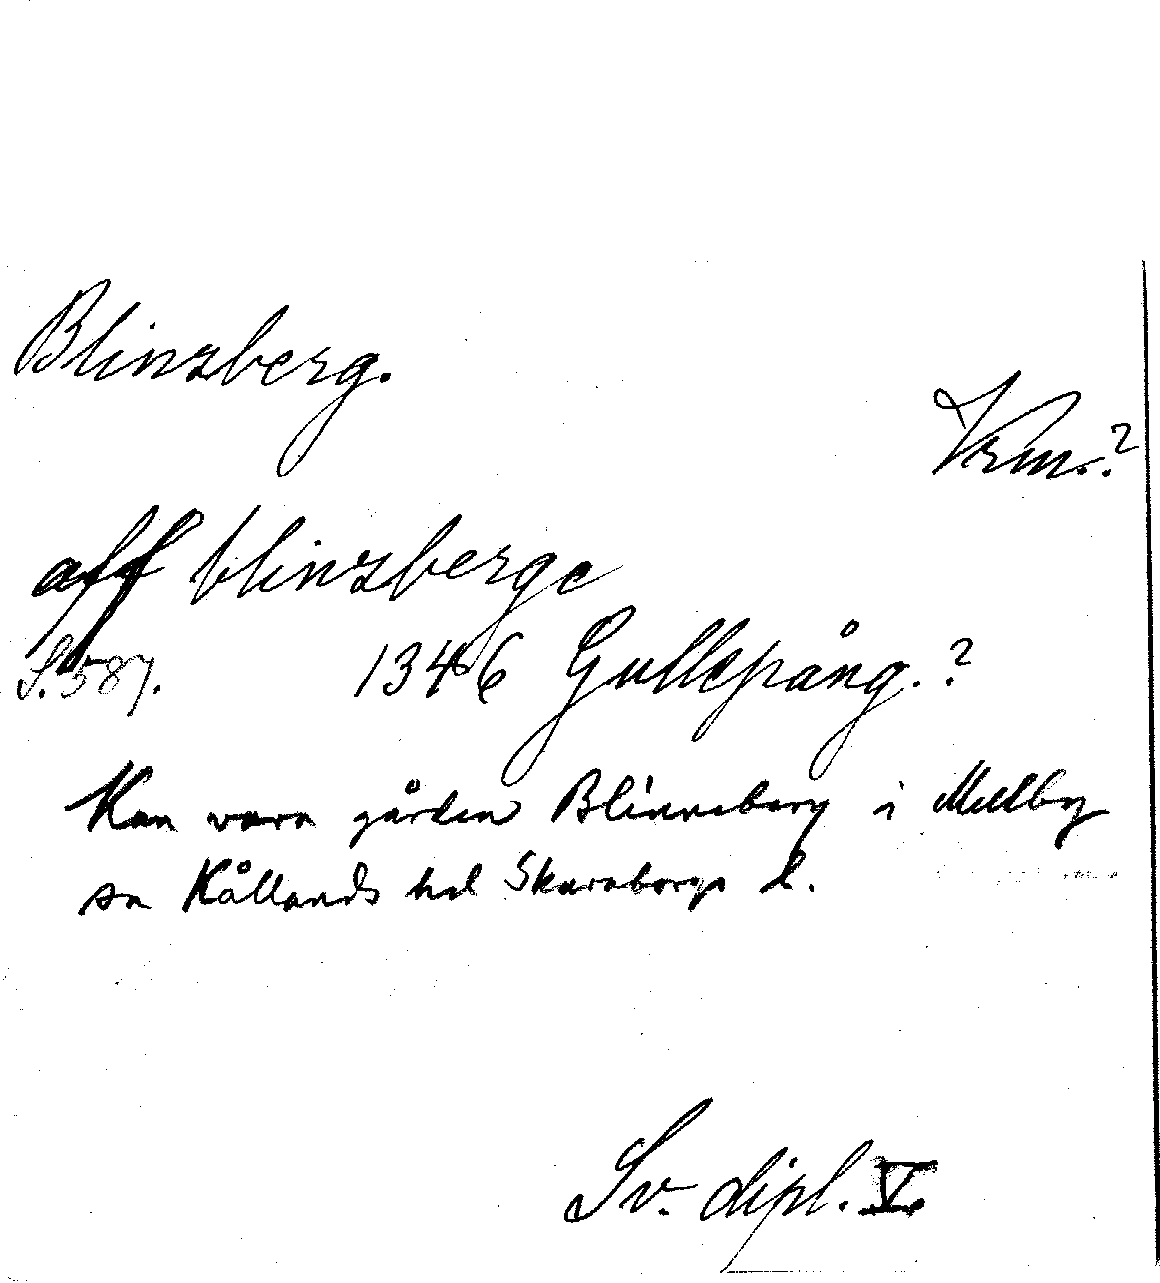 Blinsberg.
Vrm.?
aff blinsberge
S. 587. 1346 Gullspång.?
Kan vara gården Blinneberg i Mellby
sn Kållands hd Skaraborgs l.
Sv. dipl. V.